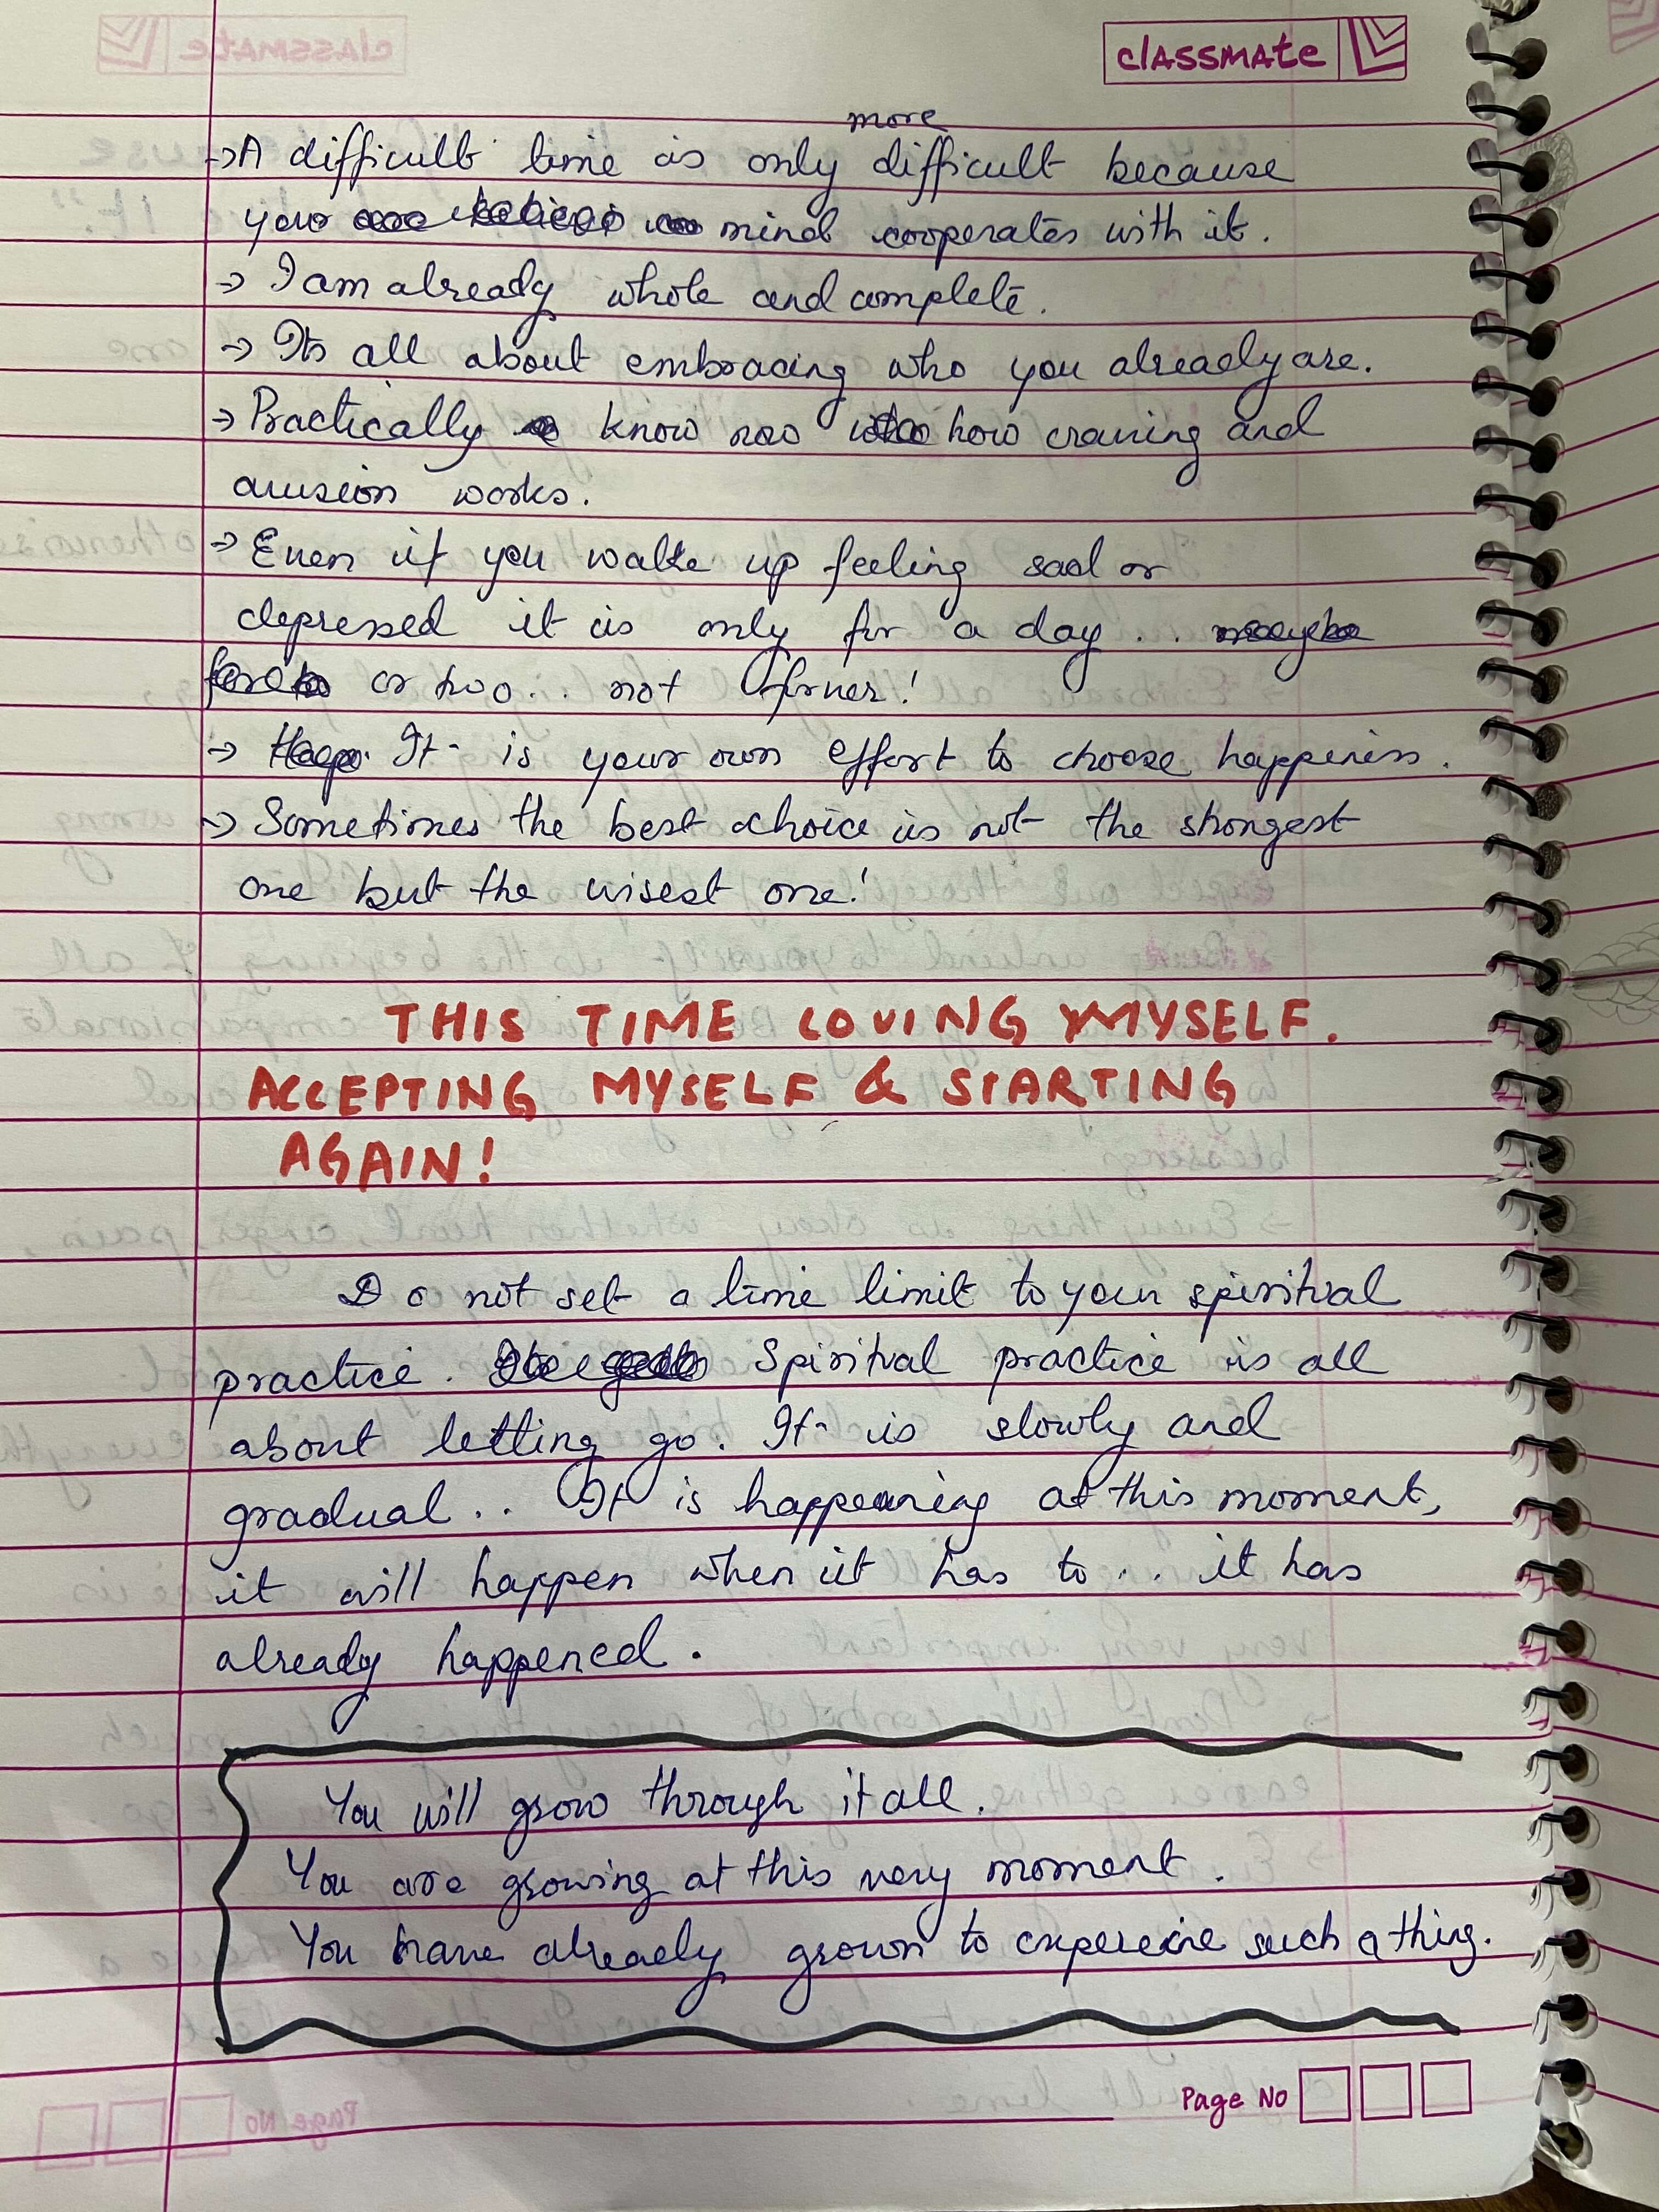 classmate
more
→ A difficult time is only difficult because
your mind cooperates with it.
→ I am already whole and complete.
→ Its all about embracing who you already are.
→ Practically know now how craving and
aversion works.
→ Even if you wake up feeling sad or
depressed it is only for a day . .
or two . . not forever!
→ It is your own effort to choose happiness.
→ Sometimes the best choice is not the strongest
one but the wisest one!
THIS TIME LOVING MYSELF.
ACCEPTING MYSELF & STARTING
AGAIN!
Do not set a time limit to your spiritual
practice. Spiritual practice is all
about letting go. It is slowly and
gradual . . It is happening at this moment,
it will happen when it has to . . it has
already happened.
You will grow through it all.
You are growing at this very moment.
You have already grown to such a thing.
Page No